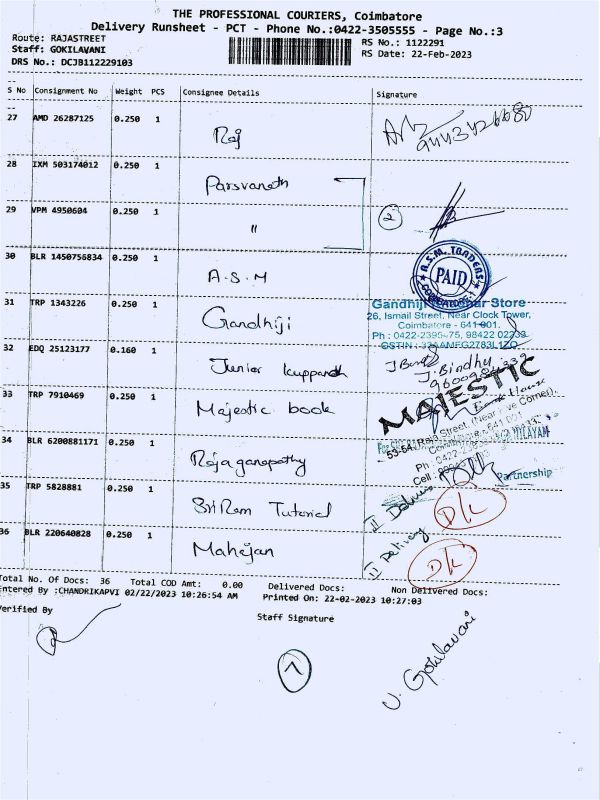 THE PROFESSIONAL COURIERS, Coimbatore
Delivery Runsheet - PCT - Phone No.:0422-3505555 - Page No.:3
Route: RAJASTREET
Staff: GOKILAVANI
DRS No.: DCJB112229103
RS No.: 1122291
RS Date: 22-Feb-2023
S No Consignment No Weight PCS Consignee Details Signature
27 AMD 26287125 0.250 1 Raj
28 IXM 503174012 0.250 1 Parsvanath
29 VPM 4950604 0.250 1 " 2
30 BLR 1450756834 0.250 1 A.S.M
A.S.M. TRADERS
PAID
COIMBATORE
31 TRP 1343226 0.250 1 Gandhiji
Gandhiji Store
26, Ismail Street, Near Clock Tower,
Coimbatore - 641 001.
32 EDQ 25123177 0.160 1 Junior
J. Bindhu
33 TRP 7910469 0.250 1 Majestic book
MAJESTIC
53-54, Raja Street, (Near Five Corner),
Coimbatore - 641 001
34 BLR 6200881171 0.250 1 Rajaganapathy
Partnership
35 TRP 5828881 0.250 1 Sri Ram Tutorial
II Delivery D/L
36 BLR 220640828 0.250 1 Mahajan
II Delivery D/L
Total No. Of Docs: 36 Total COD Amt: 0.00 Delivered Docs: Non Delivered Docs:
Entered By :CHANDRIKAPVI 02/22/2023 10:26:54 AM Printed On: 22-02-2023 10:27:03
Verified By
Staff Signature
U. Gokilavani